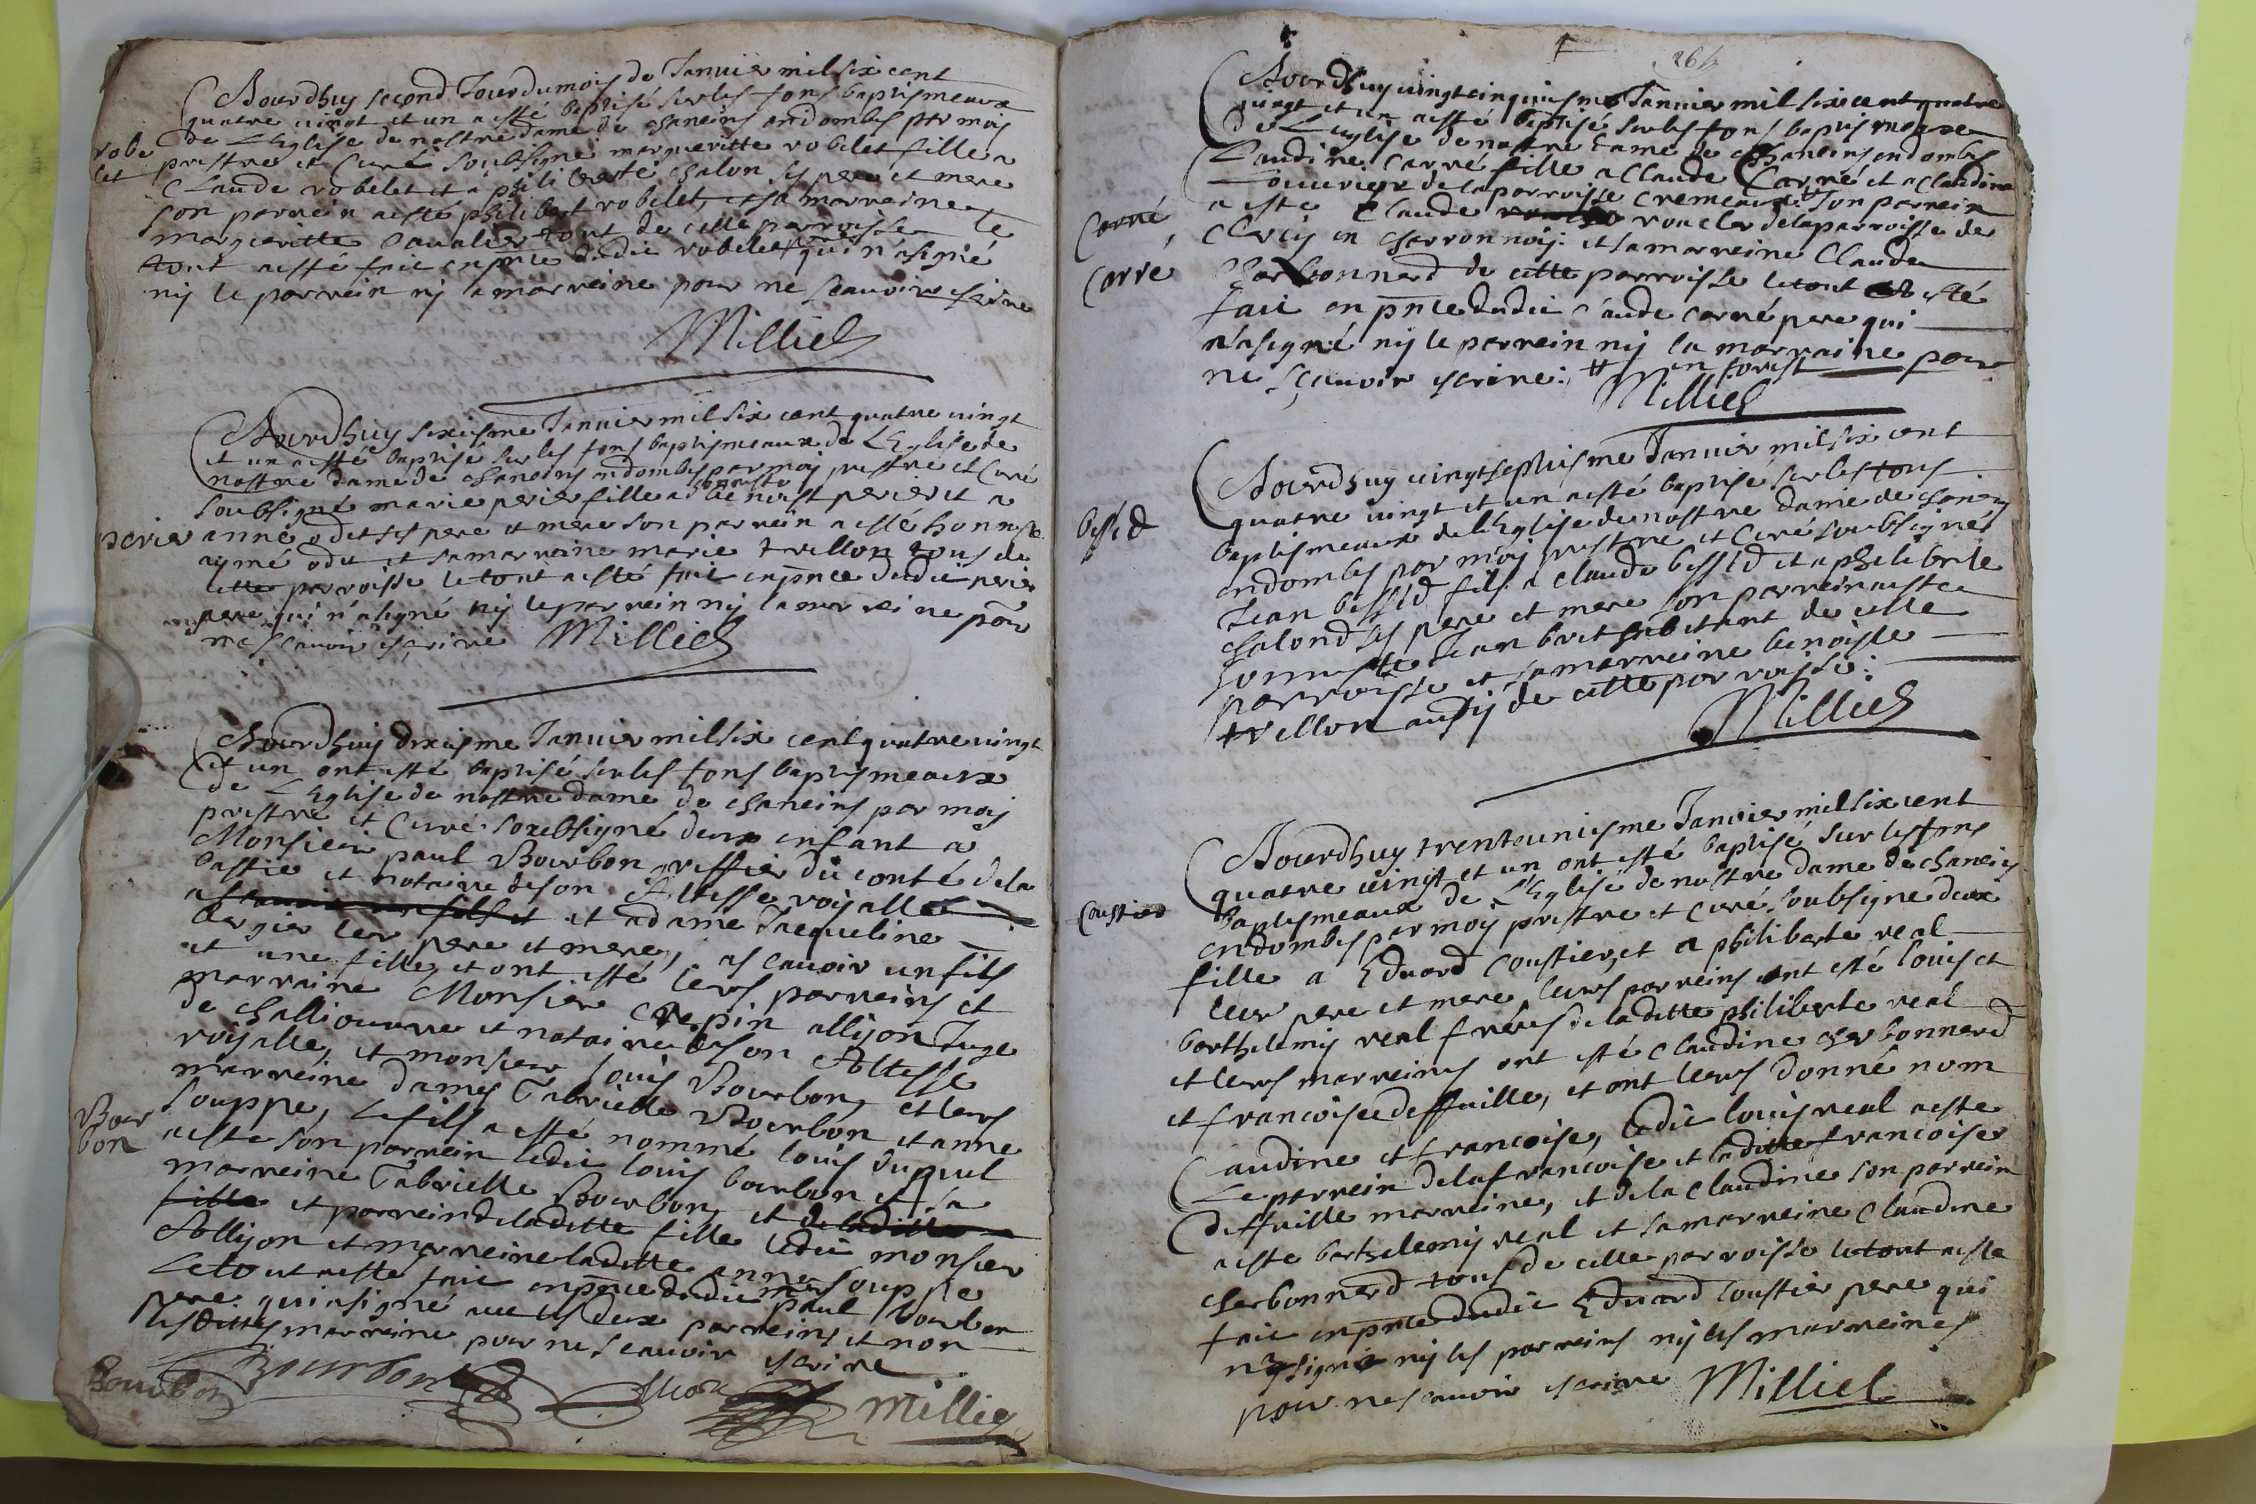 Aourdhuy second Jour du mois de Janvier mil six cent
quatre vingt et un a esté baptisé sur les fons baptismeaux
de L'Eglise de nostre dame de chaneins endombes par moy
robe
let
prestre et Curé soubsigné margueritte robelet fille a
Claude robelet et a philiberte chalon ses pere et mere
son parrein a esté philibert robelet, et sa marreine
margueritte Cavalier tout de cette parroisse Le
tout a esté faic en pnce dudic robelet qui n'a signé
ny le parrein ny la marreine pour ne scavoir escrire
Milliet
Aourdhuy sixiesme Janvier mil six cent quatre vingt
et un a esté baptisé sur les fons baptismeaux de L'Eglise de
nostre dame de chaneins endombes par moy prestre et Curé
soubsigné marie perier fille a honneste benoist perier et a
perier
anne odet ses pere et mere son parrein a esté honneste
aymé odet et sa marreine marie trellon tous de
cette parroisse le tout a esté faic en pnce dudic perier
pere qui n'a signé ny le parrein ny la marreine pour
ne scavoir escrire Milliet
Aourdhuy dixiesme Janvier mil six cent quatre vingt
et un ont esté baptisé sur les fons baptismeaux
de L'Eglise de nostre dame de chaneins par moy
prestre et Curé soubsigné deux enfant a
Monsieur paul Bourbon greffier du conté de la
bastie et notaire de son Altesse royalle
et a dame Jacqueline
bergier leur pere et mere, ascavoir un fils
et une fille, et ont esté leurs parreins et
marraine Monsieur Crepin allyon Juge
de challiouvre et notaire de son Altesse
royalle, et monsieur louis Bourbon, et leurs
marreine dames Gabrielle Bourbon et anne
Bour
bon
souppe, Le fils a esté nommé louis du quel
a esté son parrein ledic louis bourbon et sa
marreine Gabrielle Bourbon, et de laditte
fille et parrein de laditte fille ledic monsieur
Allyon et marreine laditte anne souppe
Le tout a esté faic en pnce dudic paul bourbon
pere qui a signé avec les deux parreins et non
lesdittes marreine pour ne scavoir escrire
Bourbon Bourbon Allyon Milliet
264
Aourdhuy vingtcinquiesme Janvier mil six cent quatre
vingt et un a esté baptisé sur les fons baptismeaux
de L'eglise de nostre dame de Chaneins endombes
Claudine Carré fille a Claude Carré et a Claudine
ouvrier de la parroisse Cremeaux # son parrein
Carré
a esté Claude roucler de la parroisse de
Clercy en charronnois: et sa marreine Claude
Carré
Charbonnerd de cette parroisse le tout a esté
faic en pnce dudic Claude carré pere qui
n'a signé ny le parrein ny la marraine pour
ne sçavoir escrire: # en forest
Milliet
Aourdhuy vingtseptiesme Janvier mil six cent
quatre vingt et un a esté baptisé sur les fons
baptismeaux de l'Eglise de nostre dame de chaneins
bessed
endombes par moy prestre et Curé soubsigné
Jean bessed fils a claude bessed et a philiberte
chalond ses pere et mere son parrein a esté
honneste Jean brit habitant de cette
parroisse et sa marreine benoiste
trellon aussy de cette parroisse:
Milliet
Aourdhuy trenteuniesme Janvier mil six cent
quatre vingt et un ont esté baptisé sur les fons
baptismeaux de L'Eglise de nostre dame de chaneins
Coustier
endombes par moy prestre et Curé soubsigne deux
fille a Eduard Coustier, et a philiberte real
leur pere et mere, leurs parreins ont esté louis et
barthelemy real fréres de laditte philiberte real
et leurs marreines ont esté Claudine cherbonnerd
et francoise deffaille, et ont leurs donné nom
Claudine et francoise, ledic louis real a esté
Le parrein de la francoise et laditte francoise
deffaille marreine, et de la Claudine son parrein
a esté barthelemy real et sa marreine Claudine
cherbonnerd tous de cette parroisse le tout a esté
faic en pnce dudic Eduard Coustier pere qui
n'a signé ny les parreins ny les marreines
pour ne scavoir escrire Milliet